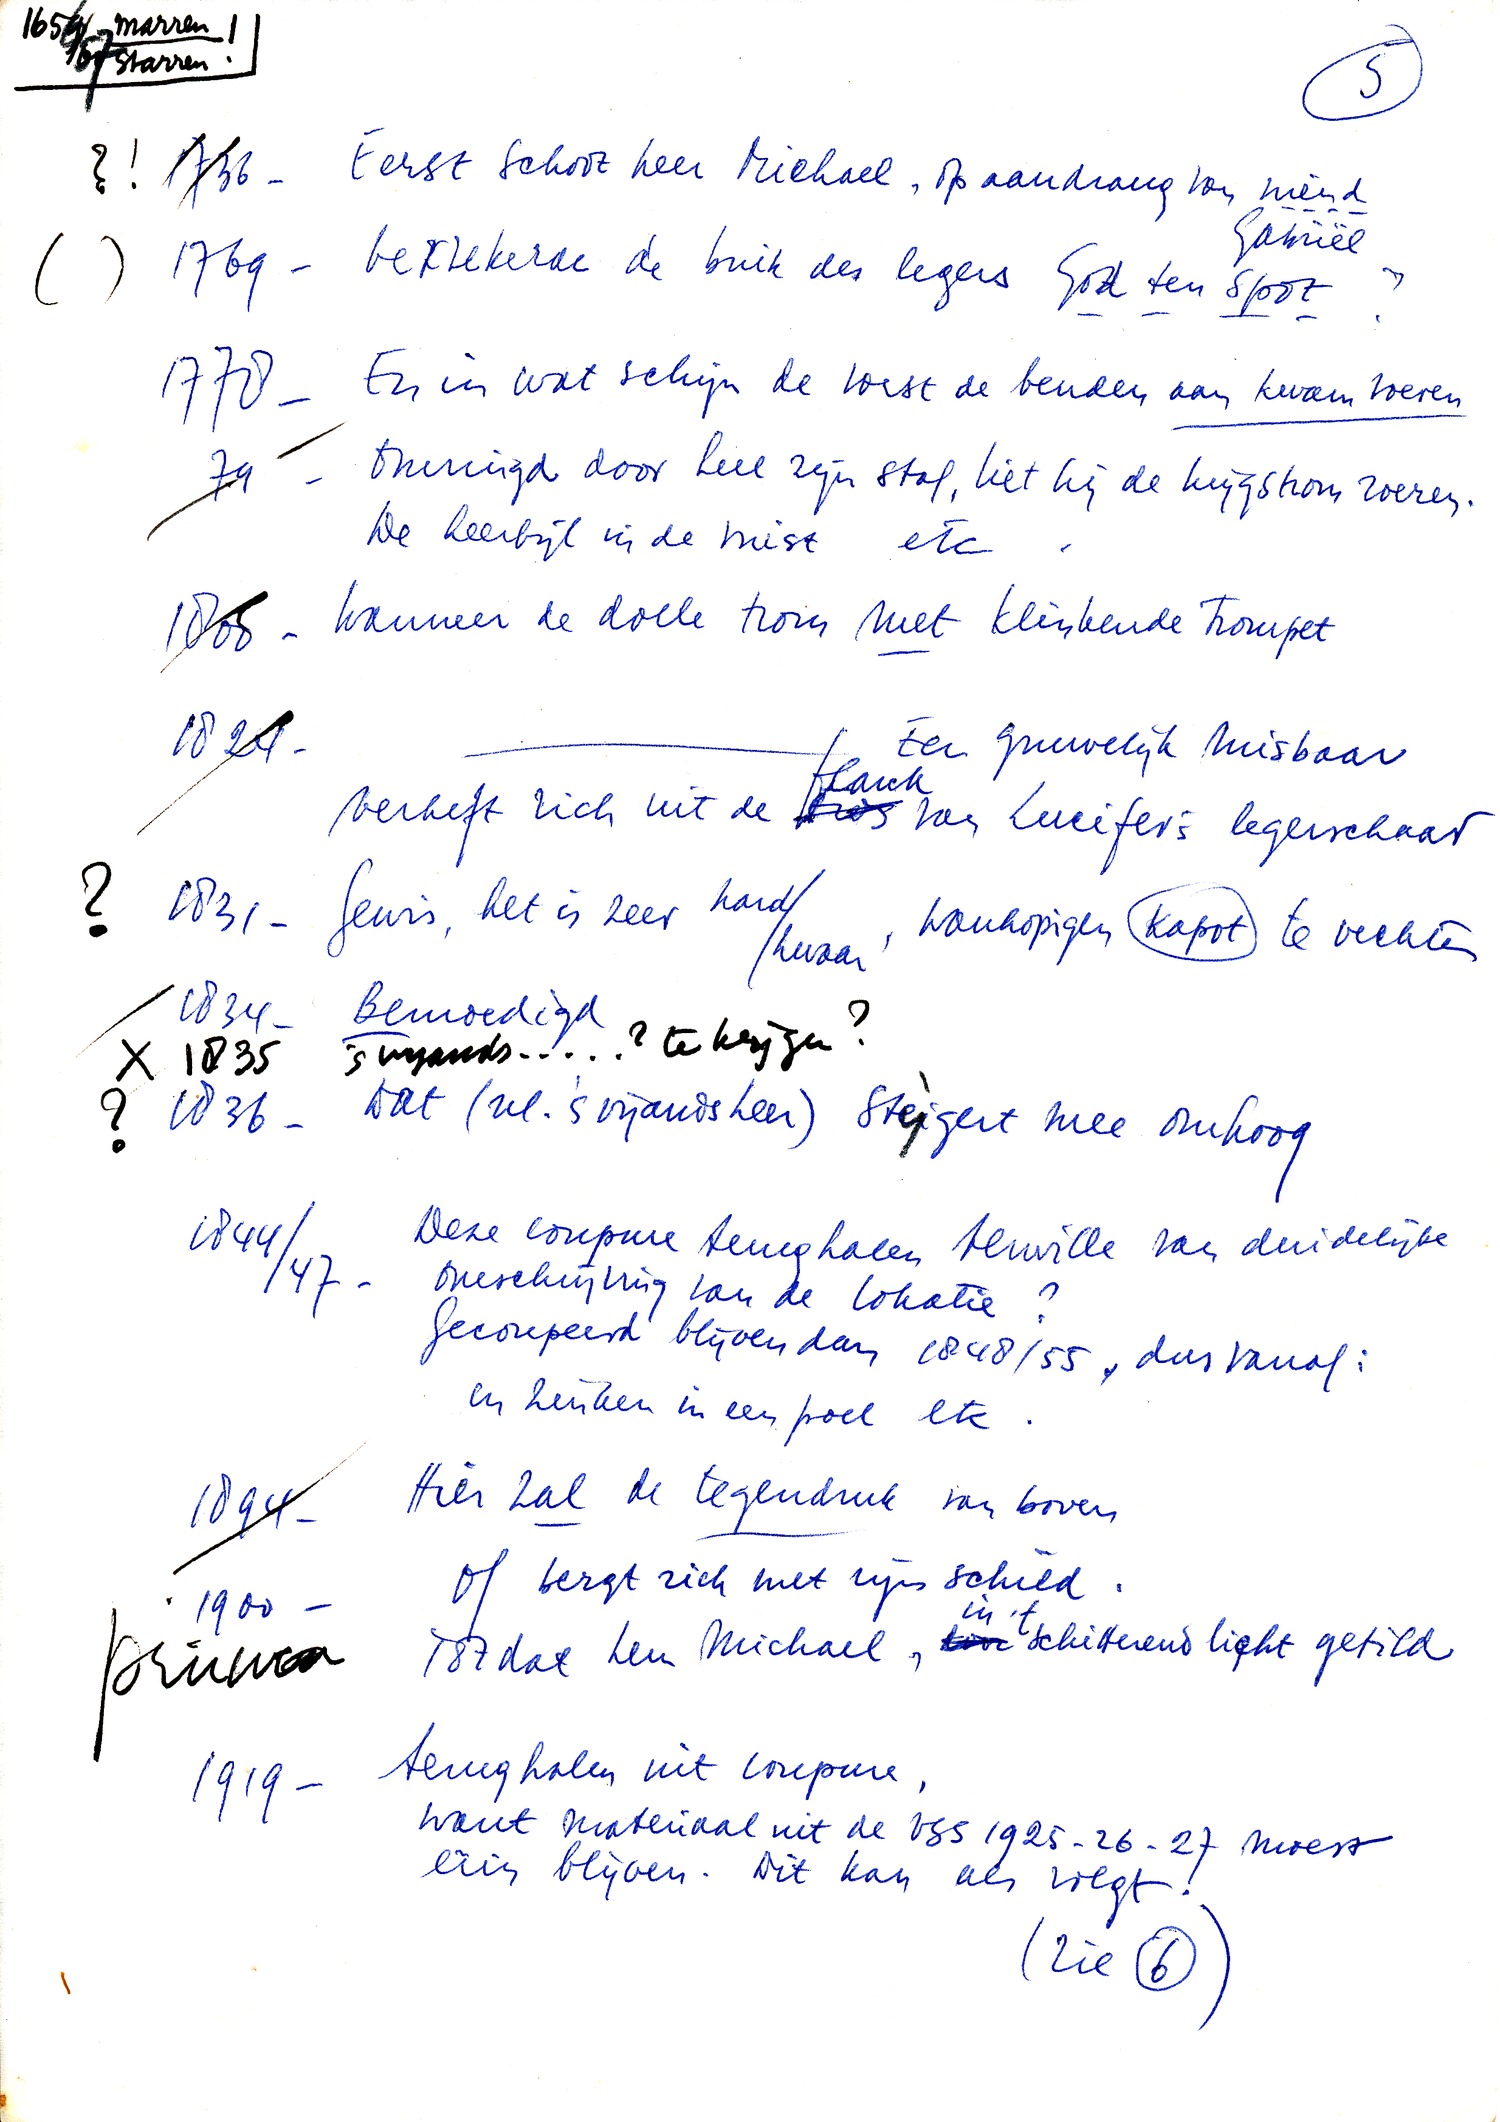 1654 - marren !
/57 starren !
5
?! 1736 - Eerst schoot heer Michael, op aandrang van vriend
Gabriël
( ) 1769 - verzekerde de buik des legers God ten spot ?
1778 - En in wat schijn de vorst de benden aan kwam voeren
79 - Omringd door heel zijn staf, liet hij de krijgstrom roeren.
De heerbijl in de vuist etc.
1808 - Wanneer de dolle trom met klinkende trompet
1824 - Een gruwelijk misbaar
flanck
verheft zich uit de van Lucifer's legerschaar
? 1831 - Gewis, het is zeer hard/zwaar, wanhopigen kapot te vechten
1834 - Bemoedigd
X 1835 's vijands.....? te krijgen?
? 1836 - Dat (nl. 's vijands heer) steigert mee omhoog
1844/47 - Deze coupure terughalen terwille van duidelijke
omschrijving van de lokatie ?
Gecoupeerd blijven dan 1848/55, dus vanaf:
en zenken in een poel etc.
1894 - Hier zal de tegendruk van boven
1900 - Of bergt zich met zijn schild.
in 't
prima Totdat heer Michael, schitterend licht getild
1919 - terughalen uit coupure,
want materiaal uit de vss 1925-26-27 moest
erin blijven. Dit kan als volgt!
(zie 6)